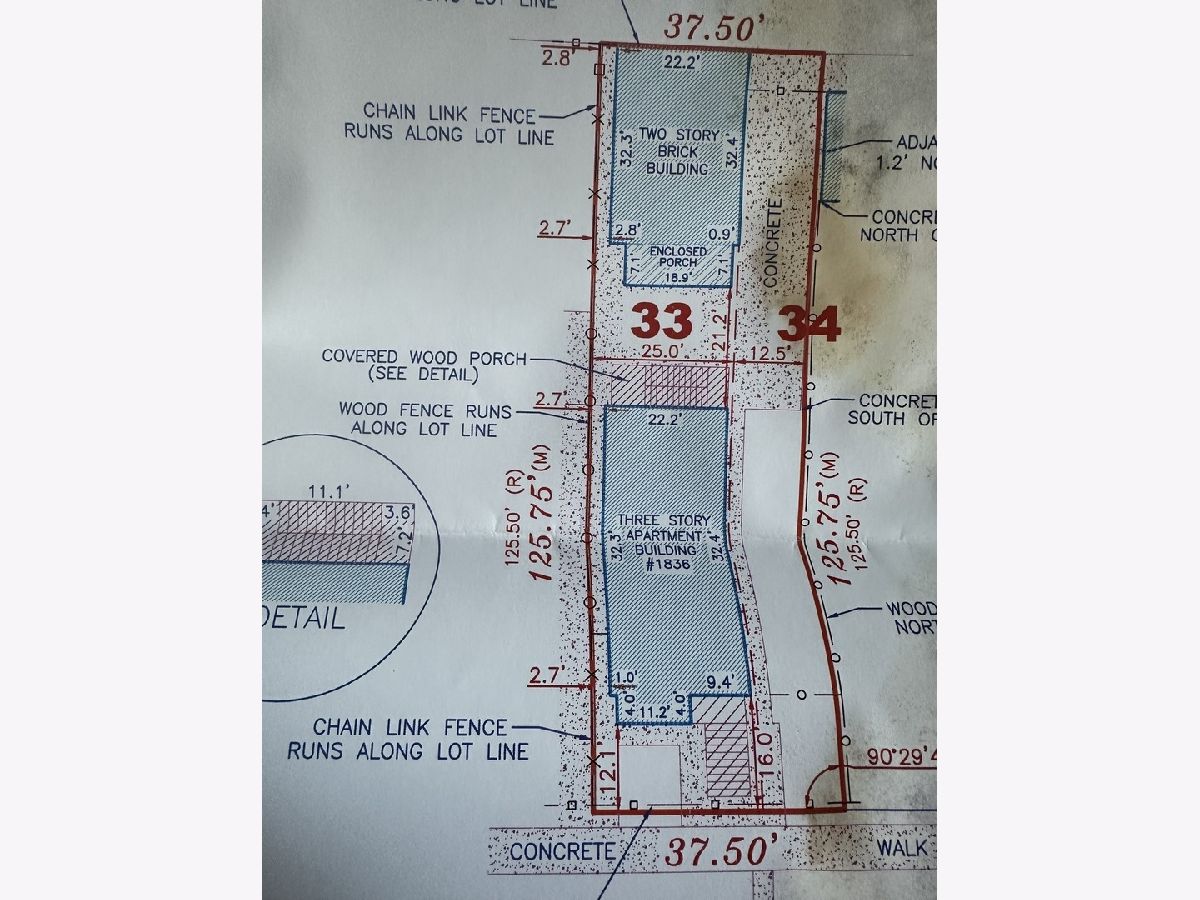 LOT LINE
37.50'
2.8'
22.2'
CHAIN LINK FENCE
RUNS ALONG LOT LINE
32.3'
TWO STORY
BRICK
BUILDING
32.4'
CONCRETE
ADJA
1.2' NO
2.7'
2.8'
0.9'
CONCRE
NORTH O
ENCLOSED
PORCH
7.1'
18.9'
7.1'
33
34
21.2'
25.0'
12.5'
COVERED WOOD PORCH
(SEE DETAIL)
2.7'
WOOD FENCE RUNS
ALONG LOT LINE
22.2'
CONCRET
SOUTH OF
125.50' (R)
125.75' (M)
125.75' (M)
125.50' (R)
11.1'
4'
3.6'
7.2'
DETAIL
THREE STORY
APARTMENT
BUILDING
#1836
32.3'
32.4'
WOOD
NORT
2.7'
1.0'
9.4'
4.0'
11.2'
4.0'
CHAIN LINK FENCE
RUNS ALONG LOT LINE
12.1'
16.0'
90°29'4
CONCRETE
37.50'
WALK